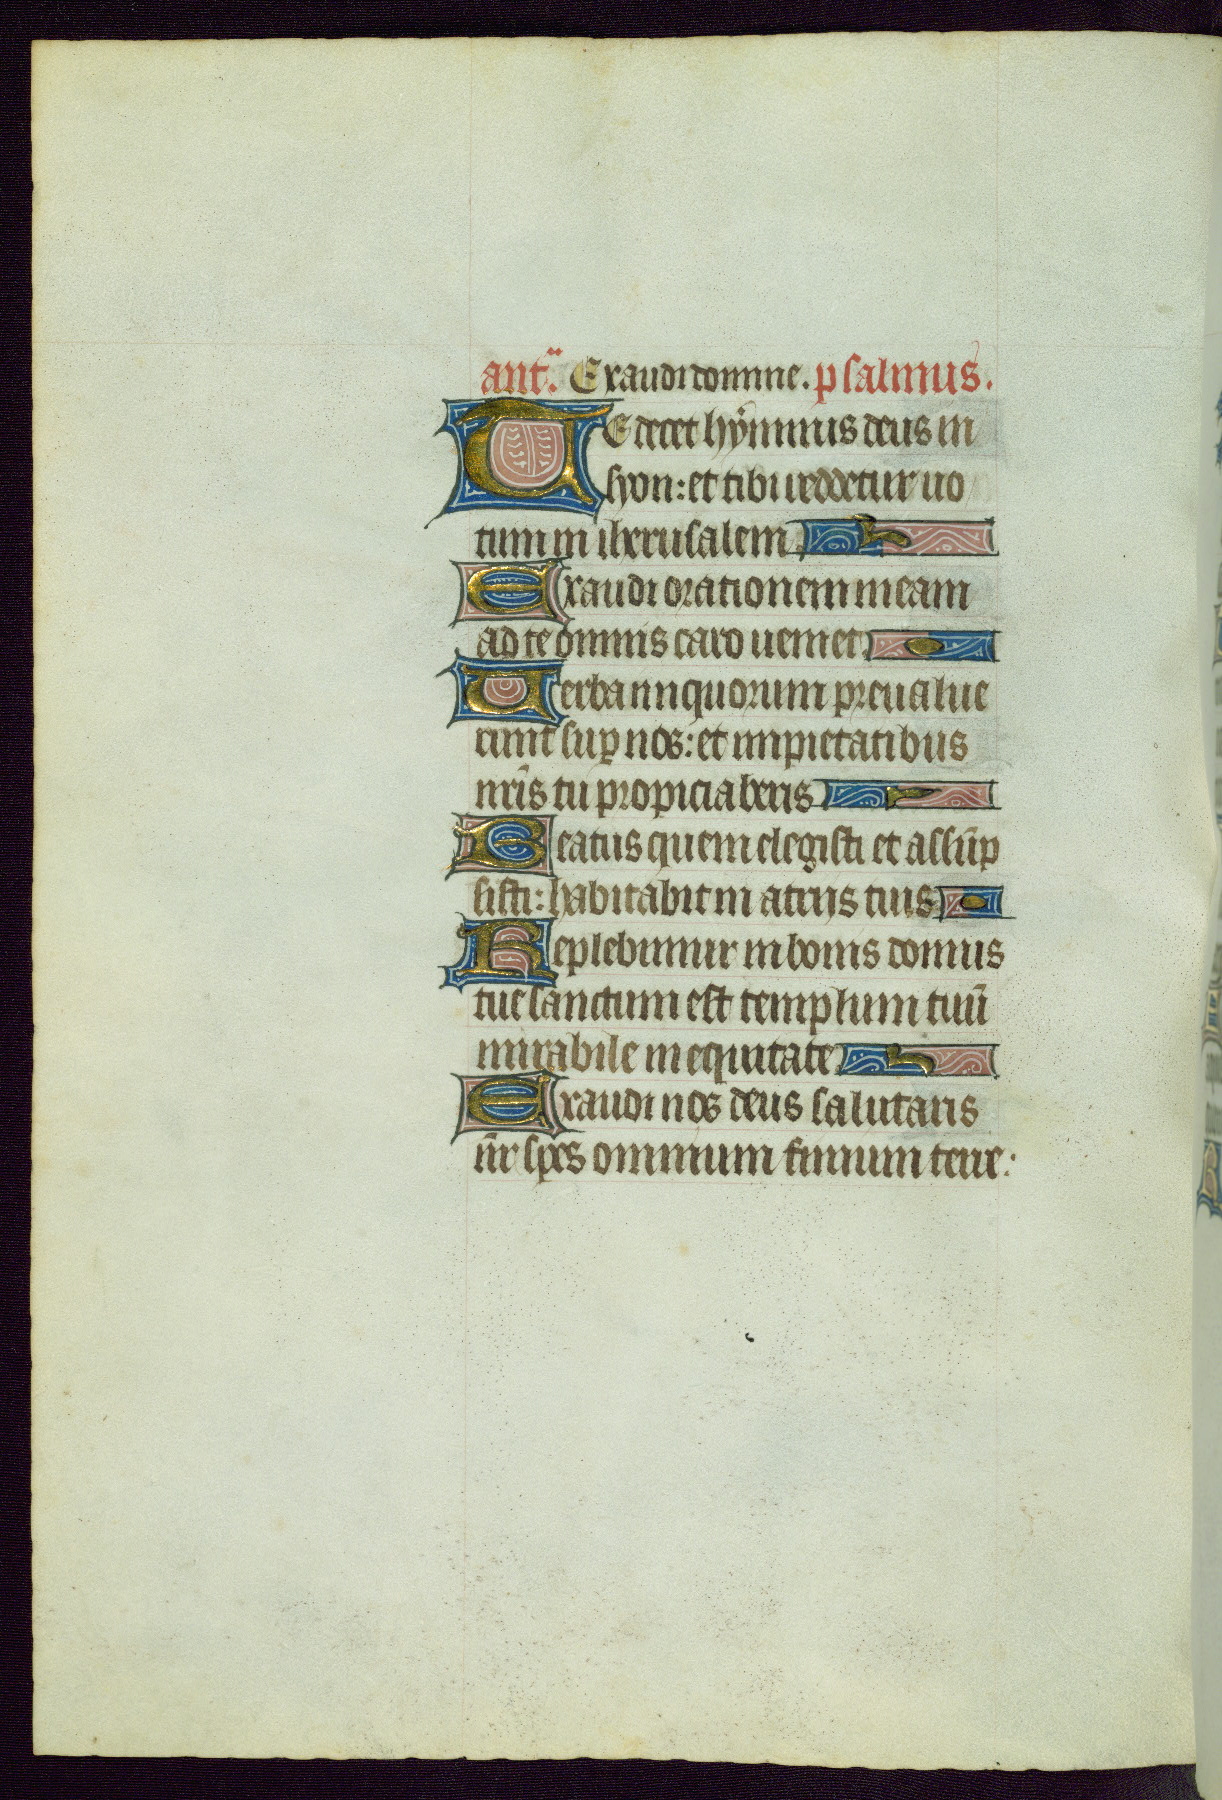 ant̄. Exaudi domine. psalmus.
TE decet hẏmnus deus in
syon: et tibi reddetur uo
tum in iherusalem
Exaudi orationem meam
ad te omnis caro ueniet
Uerba iniquorum preualue
runt sup nos: et impietatibus
nr̄is tu propiciaberis
Beatus quem elegisti et assūp
sisti: habitabit in atriis tuis
Replebimur in bonis domus
tue sanctum est templum tuū
mirabile in equitate
Exaudi nos deus salutaris
nr̄ spes omnium finium terre: